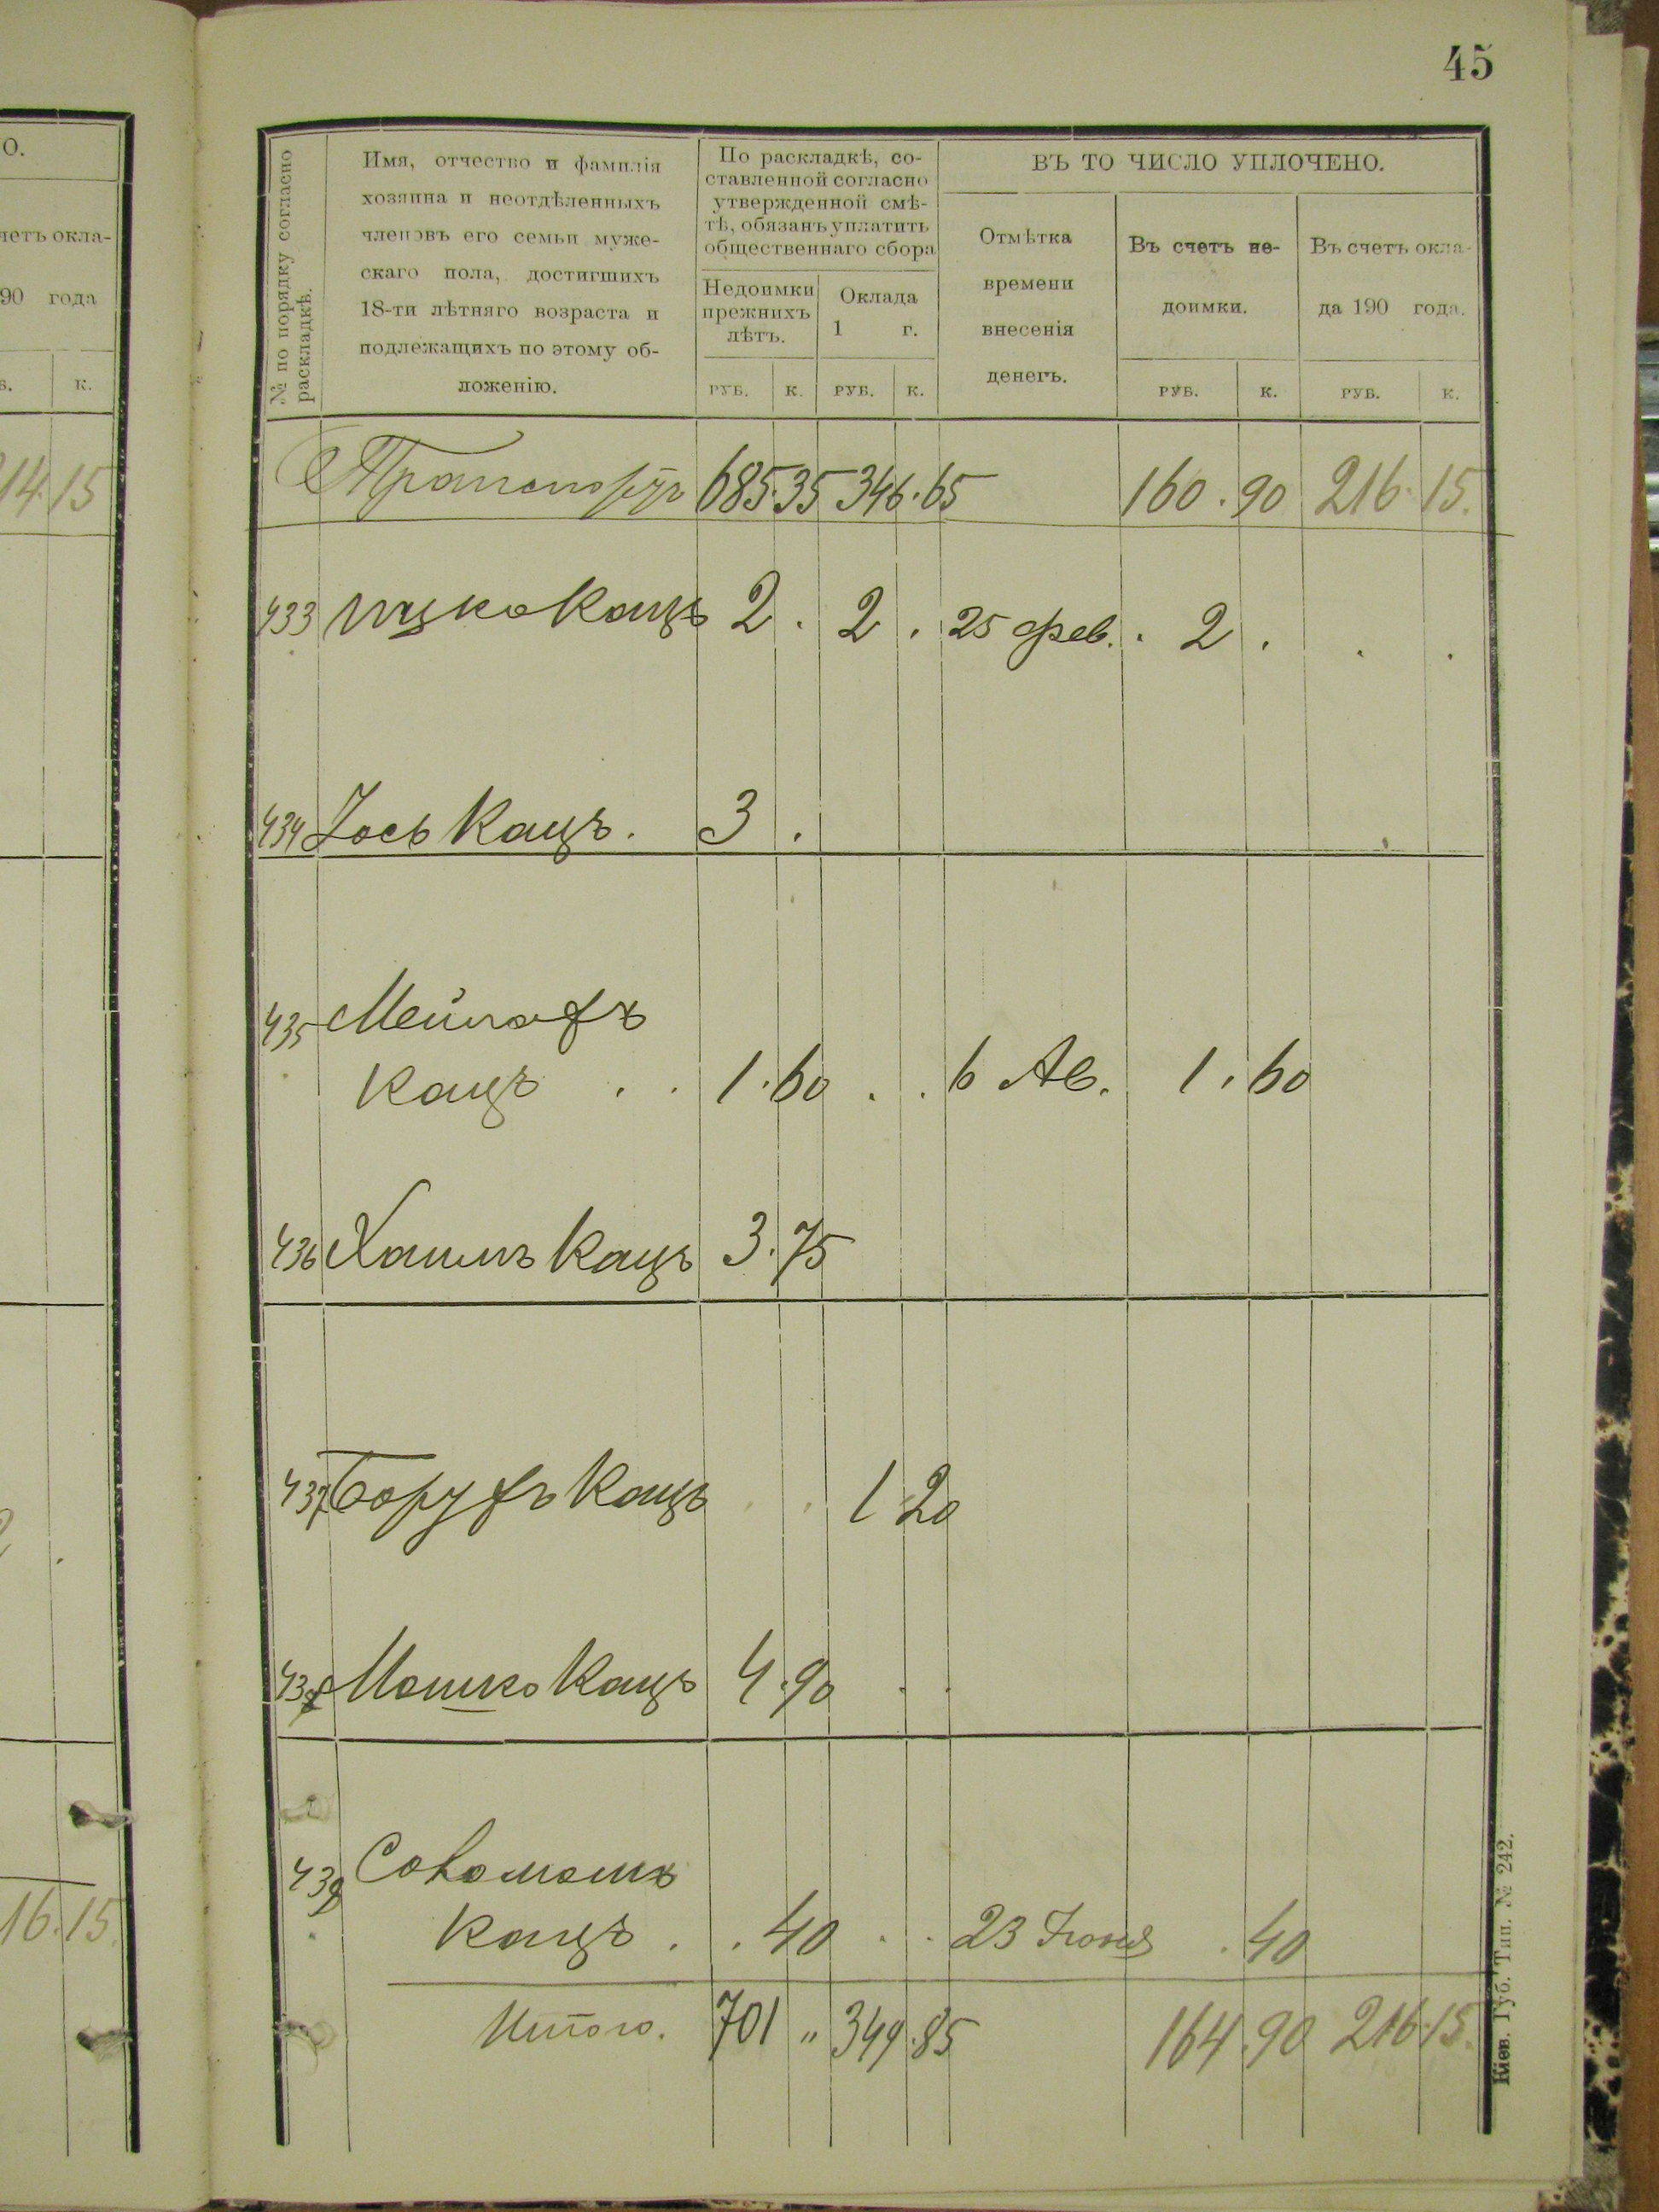 45
О.
четъ окла-
90 года
в. к.
14.15
2 .
16.15
№ по порядку согласно
раскладкѣ.
Имя, отчество и фамилія
хозяина и неотдѣленныхъ
членовъ его семьи муже-
скаго пола, достигшихъ
18-ти лѣтняго возраста и
подлежащихъ по этому об-
ложенію.
По раскладкѣ, со-
ставленной согласно
утвержденной смѣ-
тѣ, обязанъ уплатить
общественнаго сбора
Недоимки
прежнихъ
лѣтъ.
Оклада
1 г.
РУБ. К. РУБ. К.
ВЪ ТО ЧИСЛО УПЛОЧЕНО.
Отмѣтка
времени
внесенія
денегъ.
Въ счетъ не-
доимки.
РУБ. К.
Въ счетъ окла-
да 190 года.
РУБ. К.
Транспортъ 685.35 346.65 160.90 216.15.
433 Ицко Кацъ 2 . 2 . 25 фев. . 2 . . .
434 Іось Кацъ. 3 .
435 Мейлахъ
Кацъ . . 1.60 . . 6 Ав. 1.60
436 Хаимъ Кацъ 3.75
437 Борухъ Кацъ . . 1 20
438 Мошко Кацъ 4.90 . .
439 Соломонъ
Кацъ . . 40 . . 23 Іюня . 40
Итого. 701 „ 349.85 164.90 216.15.
Кіев. Губ. Тип. № 242.